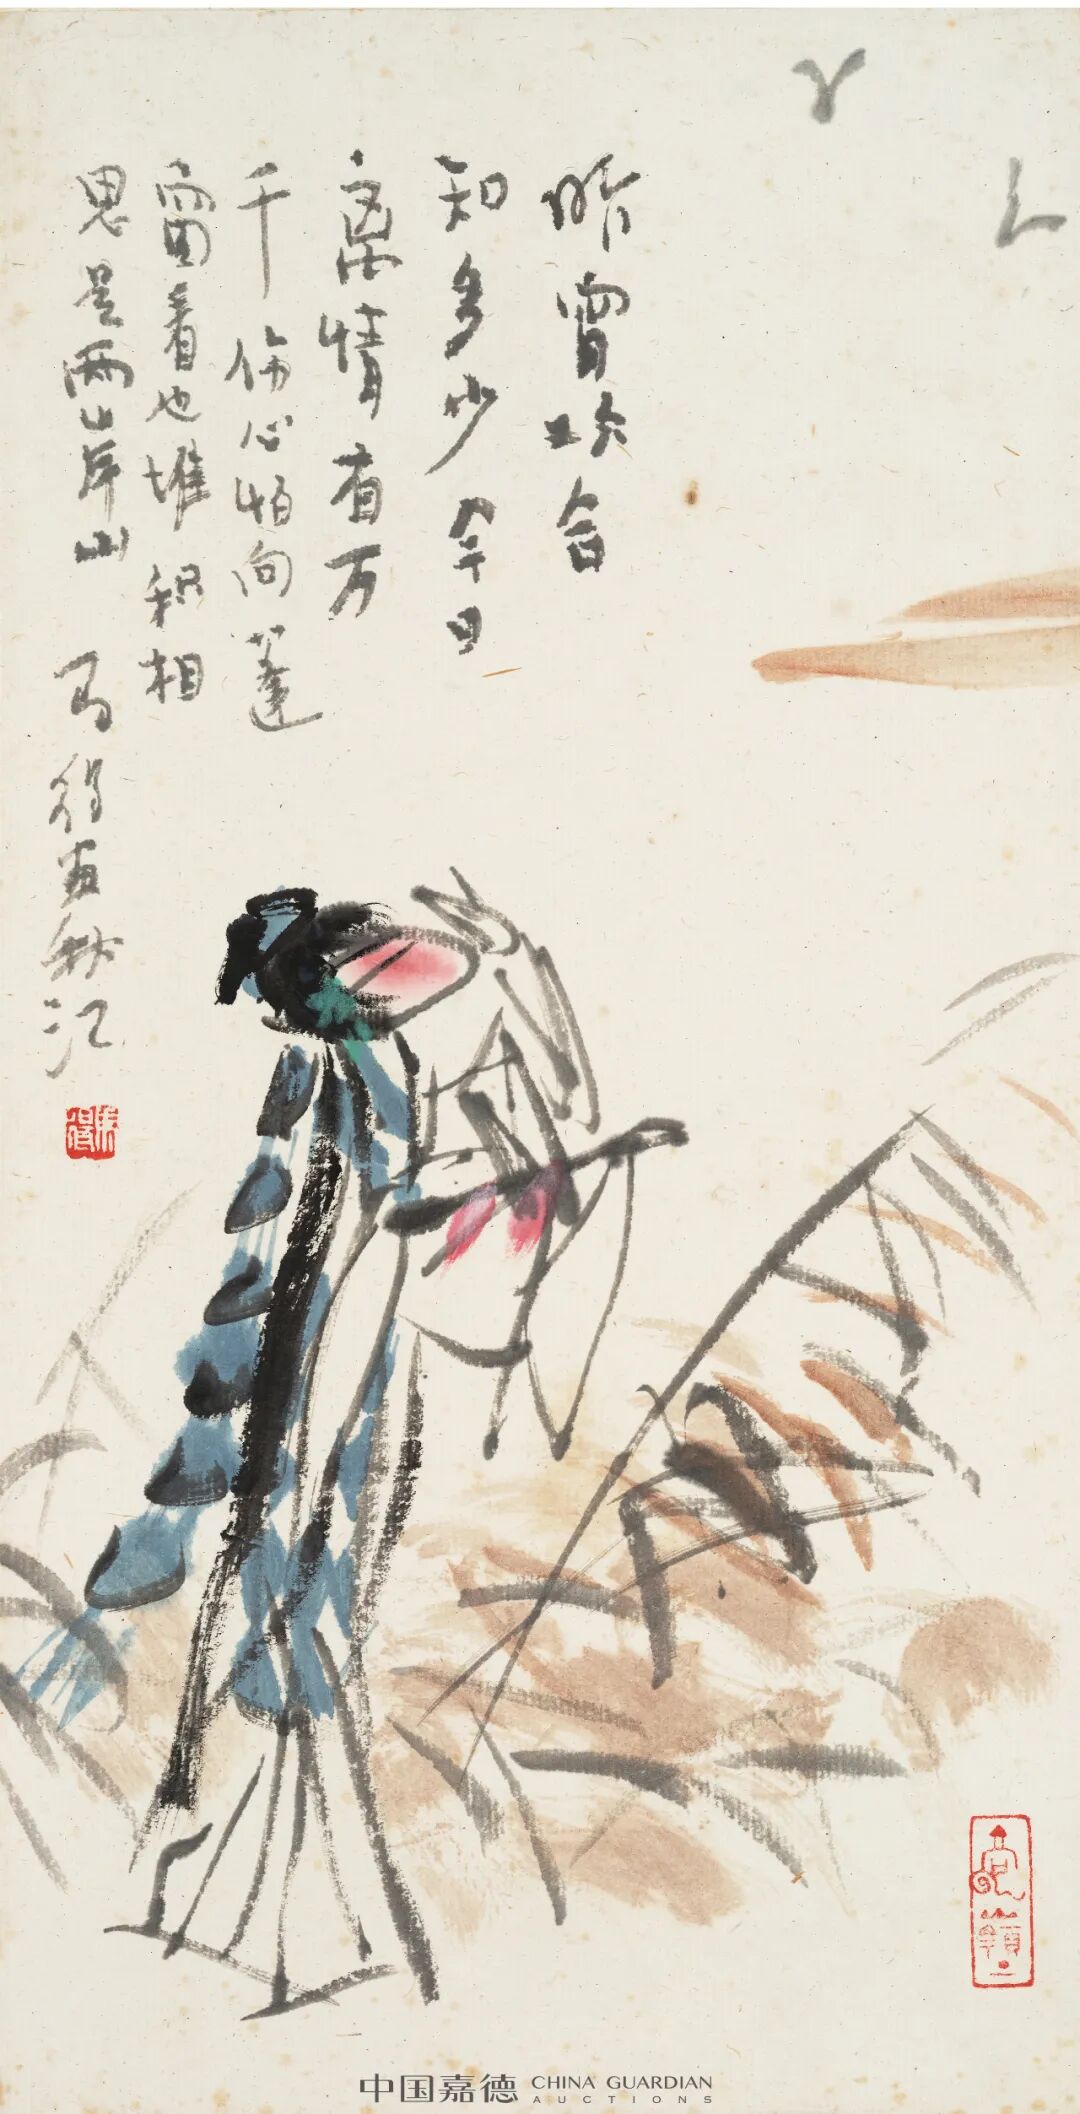 昨宵欢会
知多少今日
离情有万
千伤心怕向蓬
窗看也堆积相
思是两岸山 马得画秋江
馬得
中国嘉德 CHINA GUARDIAN
AUCTIONS